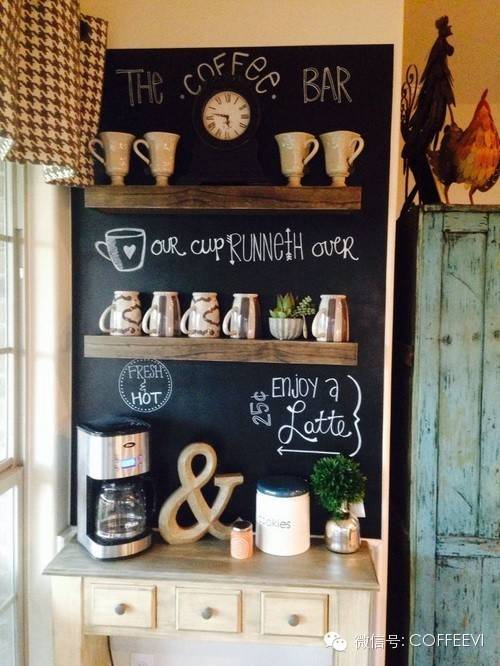 THE COFFEE BAR
OUR CUP RUNNETH OVER
FRESH
&
HOT
25¢
ENJOY A
Latte
&
cookies
微信号: COFFEEVI